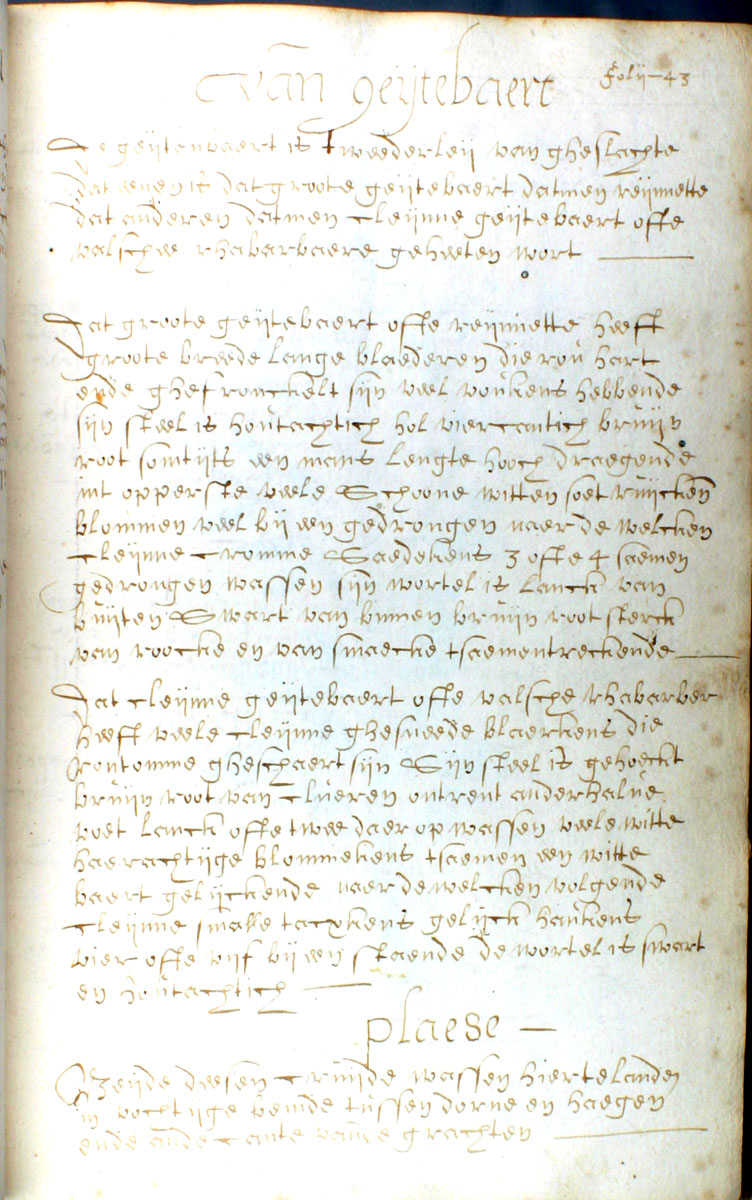 van geijtebaert folij-43
De geijtenbaert is tweederleij van gheslachte
dat eenen is dat groote geijtebaert datmen reijnnette
dat anderen datmen cleijnne geijtebaert offe
valschee rhabarbaere geheeten wort
Dat groote geijtebaert offe reijnnette heeft
groote breede lange blaederen die roù hart
ende ghefronckelt sijn veel voùkens hebbende
sijn steel is hoùtachtich hol viercantich brùijn
root somtijts een mans lengte hooch draegende
int opperste veele Schoone witten soet rùijcken
blommen veel bij een gedrongen naer de welcken
cleijnne cromme Saedekens 3 offe 4 saemen
gedrongen wassen sijn wortel is lanck van
bùijten Swart van binnen brùijn root sterck
van roocke en van smaecke tsaementreckende
Dat cleijnne geijtebaert offe valsche rhabarber
heeft veele cleijnne ghesneede blaerkens die
rontomme gheschaert sijn Sijn steel is gehoeckt
brùijn root van clùeren ontrent anderhalùe
voet lanck offe twee daer op wassen veele witte
haerachtijge blommekens tsaemen een witte
baert gelijckende naer de welcken volgende
cleijnne smalle tacxkens gelijck haùkens
vier offe vijf bij een staende de wortel is swart
en hoùtachtich
plaese
Beijde deesen crùijde wassen hier te landen
in vochtijge bemde tùssen dorne en haegen
ende ande cante vande grachten